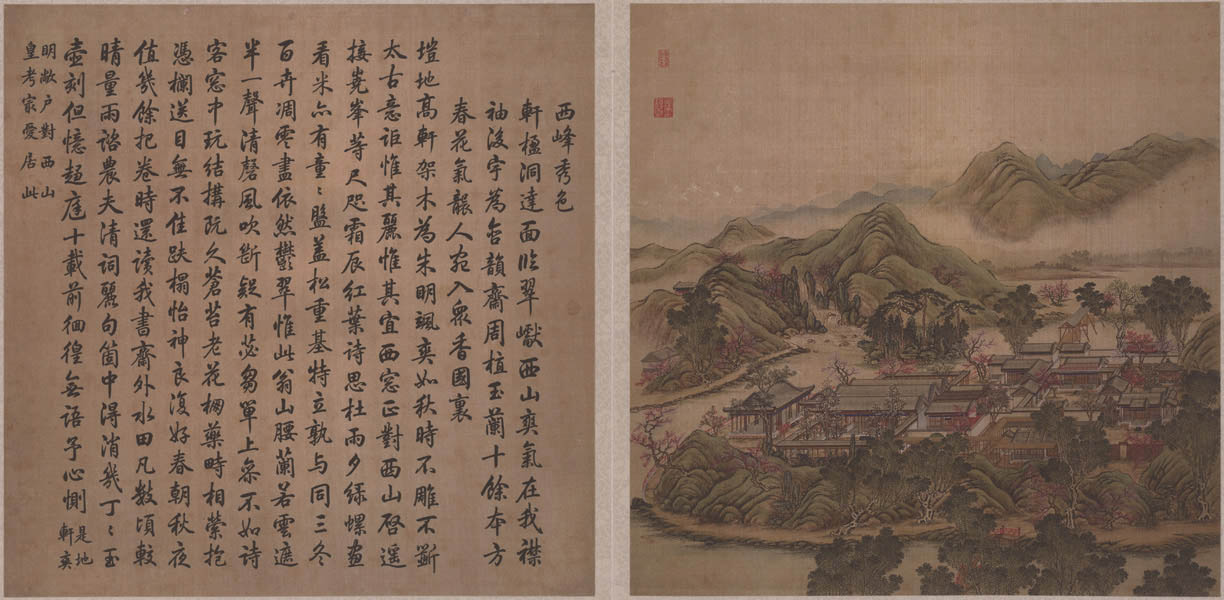 西峰秀色
軒楹洞達面臨翠巘西山爽氣在我襟
袖後宇為含韻齋周植玉蘭十餘本方
春花氣襲人宛入眾香國裏
塏地高軒架木為朱明颯爽如秋時不雕不斵
太古意詎惟其麗惟其宜西窓正對西山啓遥
接嶤峯等尺咫霜辰紅葉詩思杜雨夕綠螺畫
看米亦有童〻盤蓋松重基特立孰与同三冬
百卉凋零盡依然鬱翠惟此翁山腰蘭若雲遮
半一聲清磬風吹斷疑有苾芻單上參不如詩
客窓中玩結搆既久蒼苔老花欄藥畤相縈抱
憑欄送目無不佳趺榻怡神良復好春朝秋夜
值幾餘把卷時還讀我書齋外水田凡數頃較
晴量雨諮農夫清詞麗句箇中得消幾丁〻玉
壺刻但憶趨庭十載前徊徨無語予心惻
是地
軒爽
明敞户對西山
皇考冣愛居此